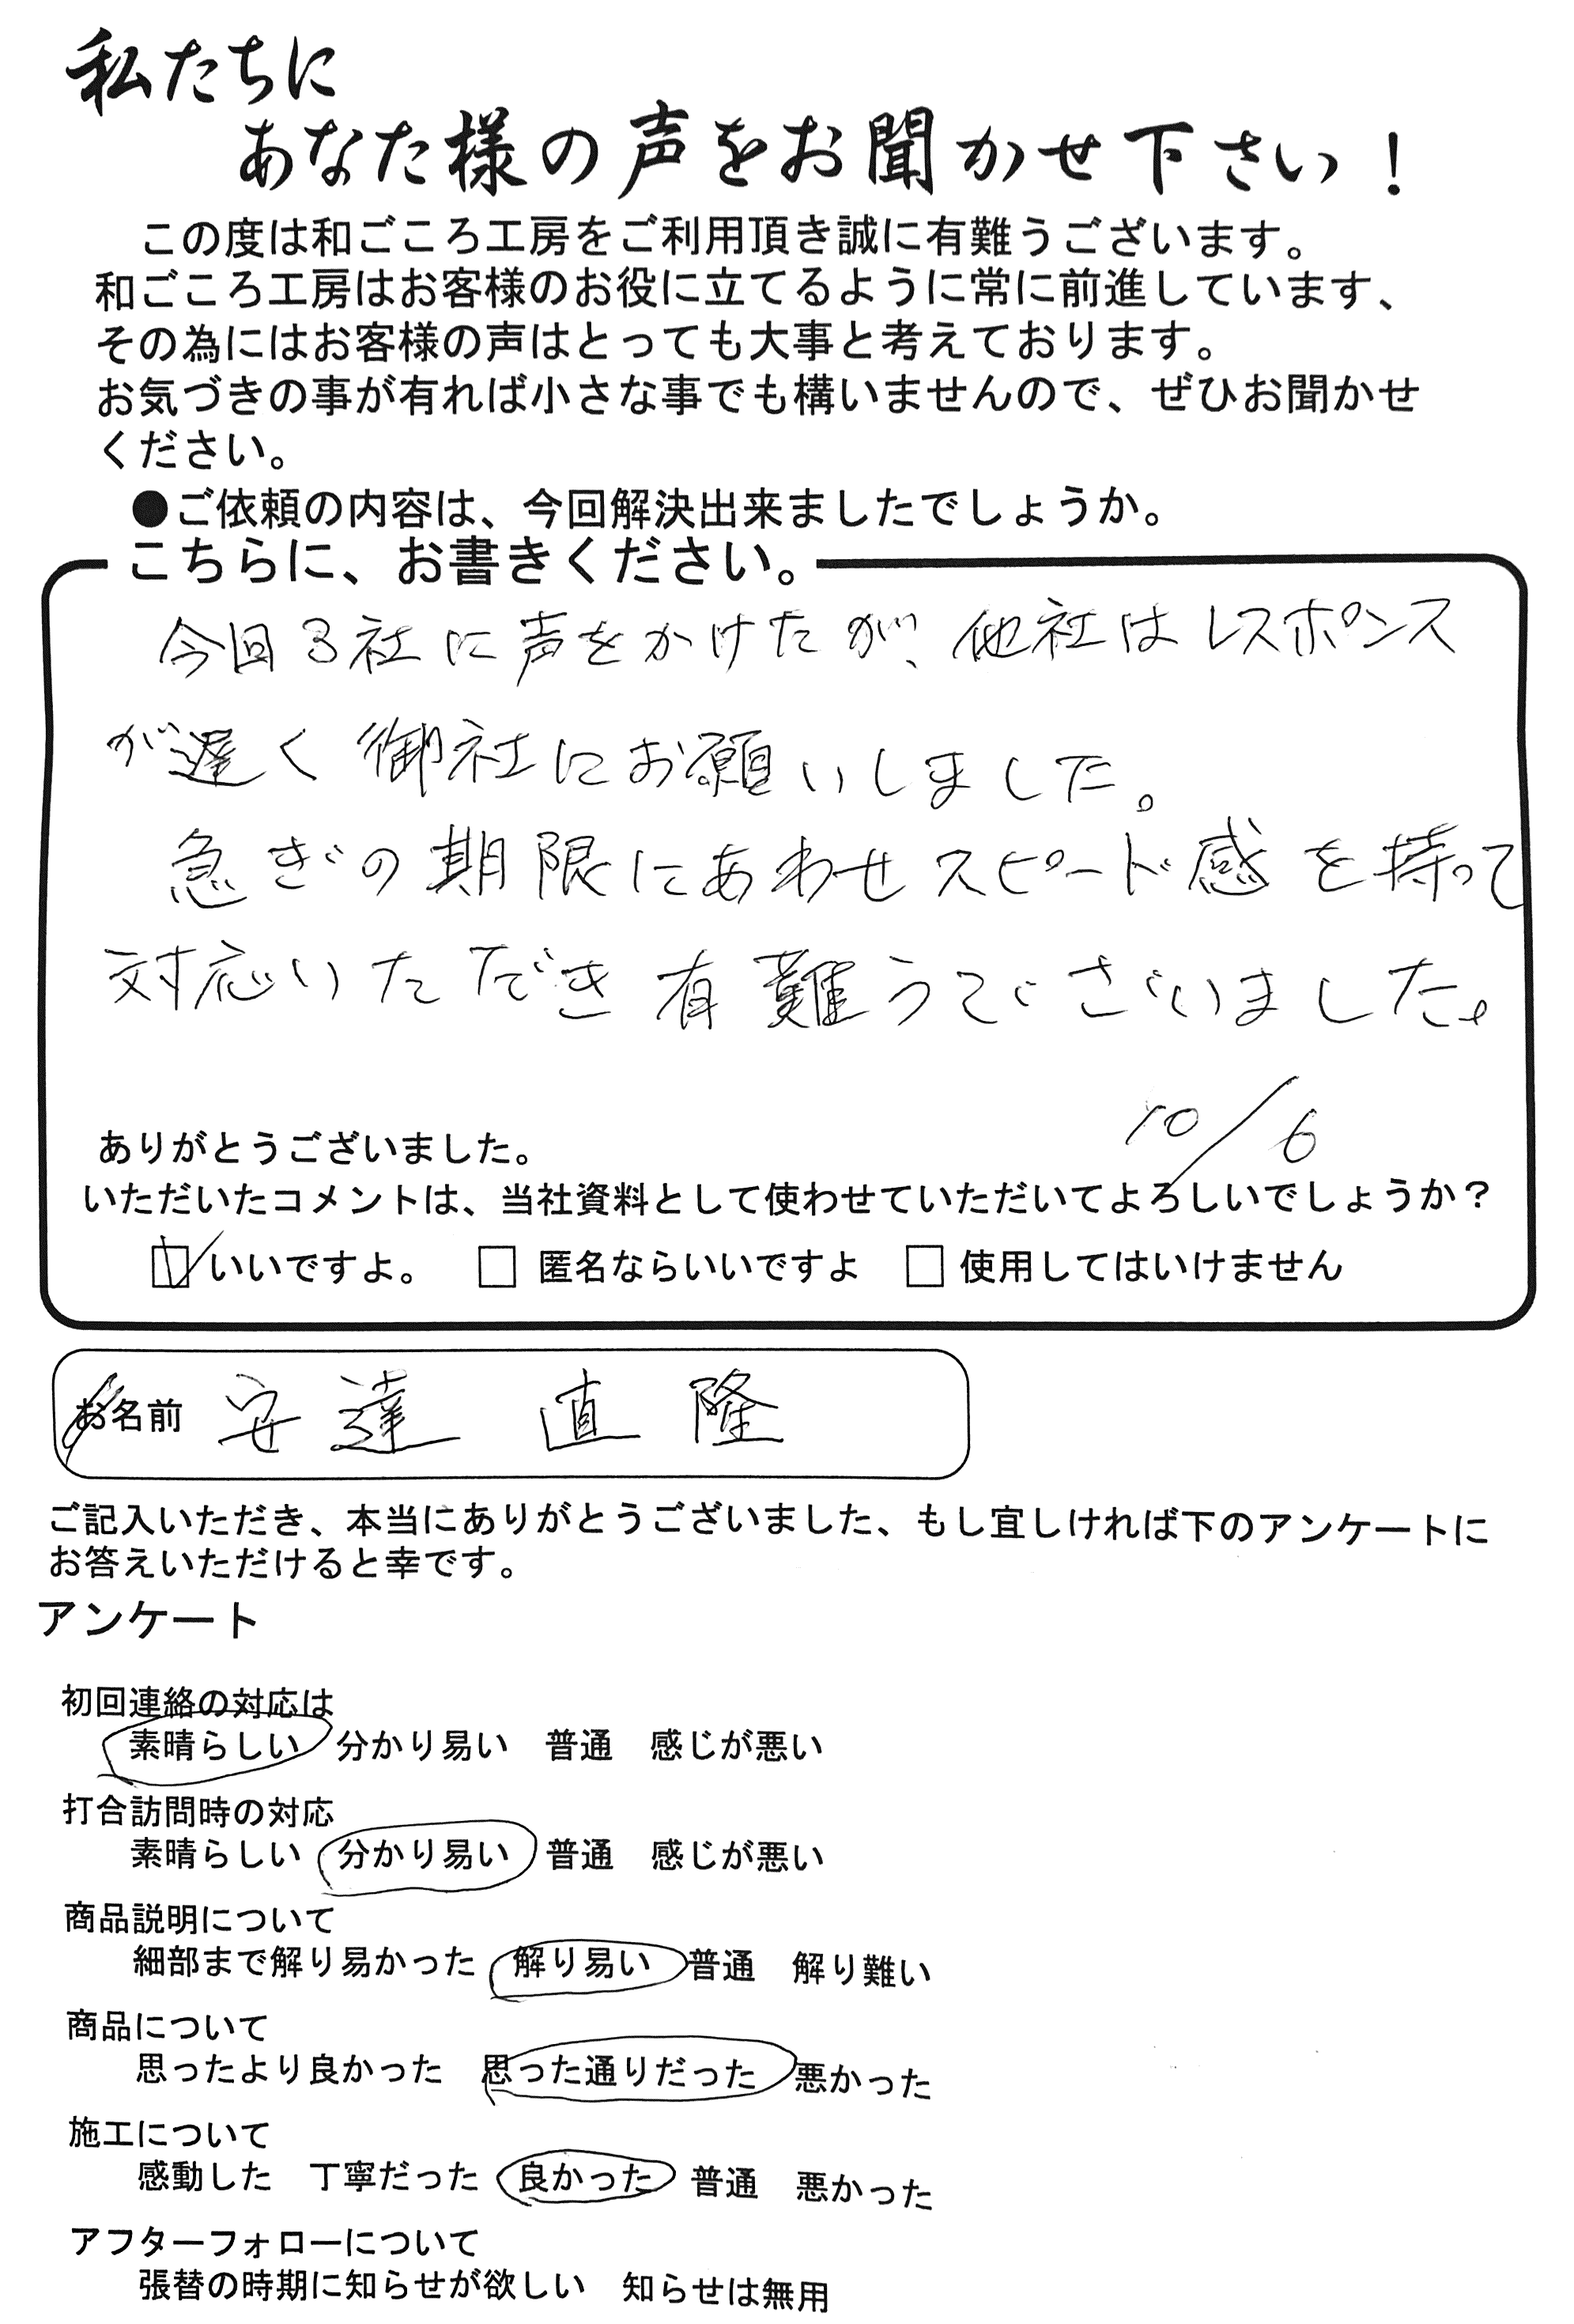 私たちに
あなた様の声をお聞かせ下さい！
この度は和ごころ工房をご利用頂き誠に有難うございます。
和ごころ工房はお客様のお役に立てるように常に前進しています、
その為にはお客様の声はとっても大事と考えております。
お気づきの事が有れば小さな事でも構いませんので、ぜひお聞かせ
ください。
●ご依頼の内容は、今回解決出来ましたでしょうか。
こちらに、お書きください。
今回3社に声をかけたが、他社はレスポンス
が遅く御社にお願いしました。
急ぎの期限にあわせスピード感を持って
対応いただき有難うございました。
10/6
ありがとうございました。
いただいたコメントは、当社資料として使わせていただいてよろしいでしょうか？
☑いいですよ。 □ 匿名ならいいですよ □ 使用してはいけません
お名前 安達 直隆
ご記入いただき、本当にありがとうございました、もし宜しければ下のアンケートに
お答えいただけると幸です。
アンケート
初回連絡の対応は
素晴らしい 分かり易い 普通 感じが悪い
打合訪問時の対応
素晴らしい 分かり易い 普通 感じが悪い
商品説明について
細部まで解り易かった 解り易い 普通 解り難い
商品について
思ったより良かった 思った通りだった 悪かった
施工について
感動した 丁寧だった 良かった 普通 悪かった
アフターフォローについて
張替の時期に知らせが欲しい 知らせは無用